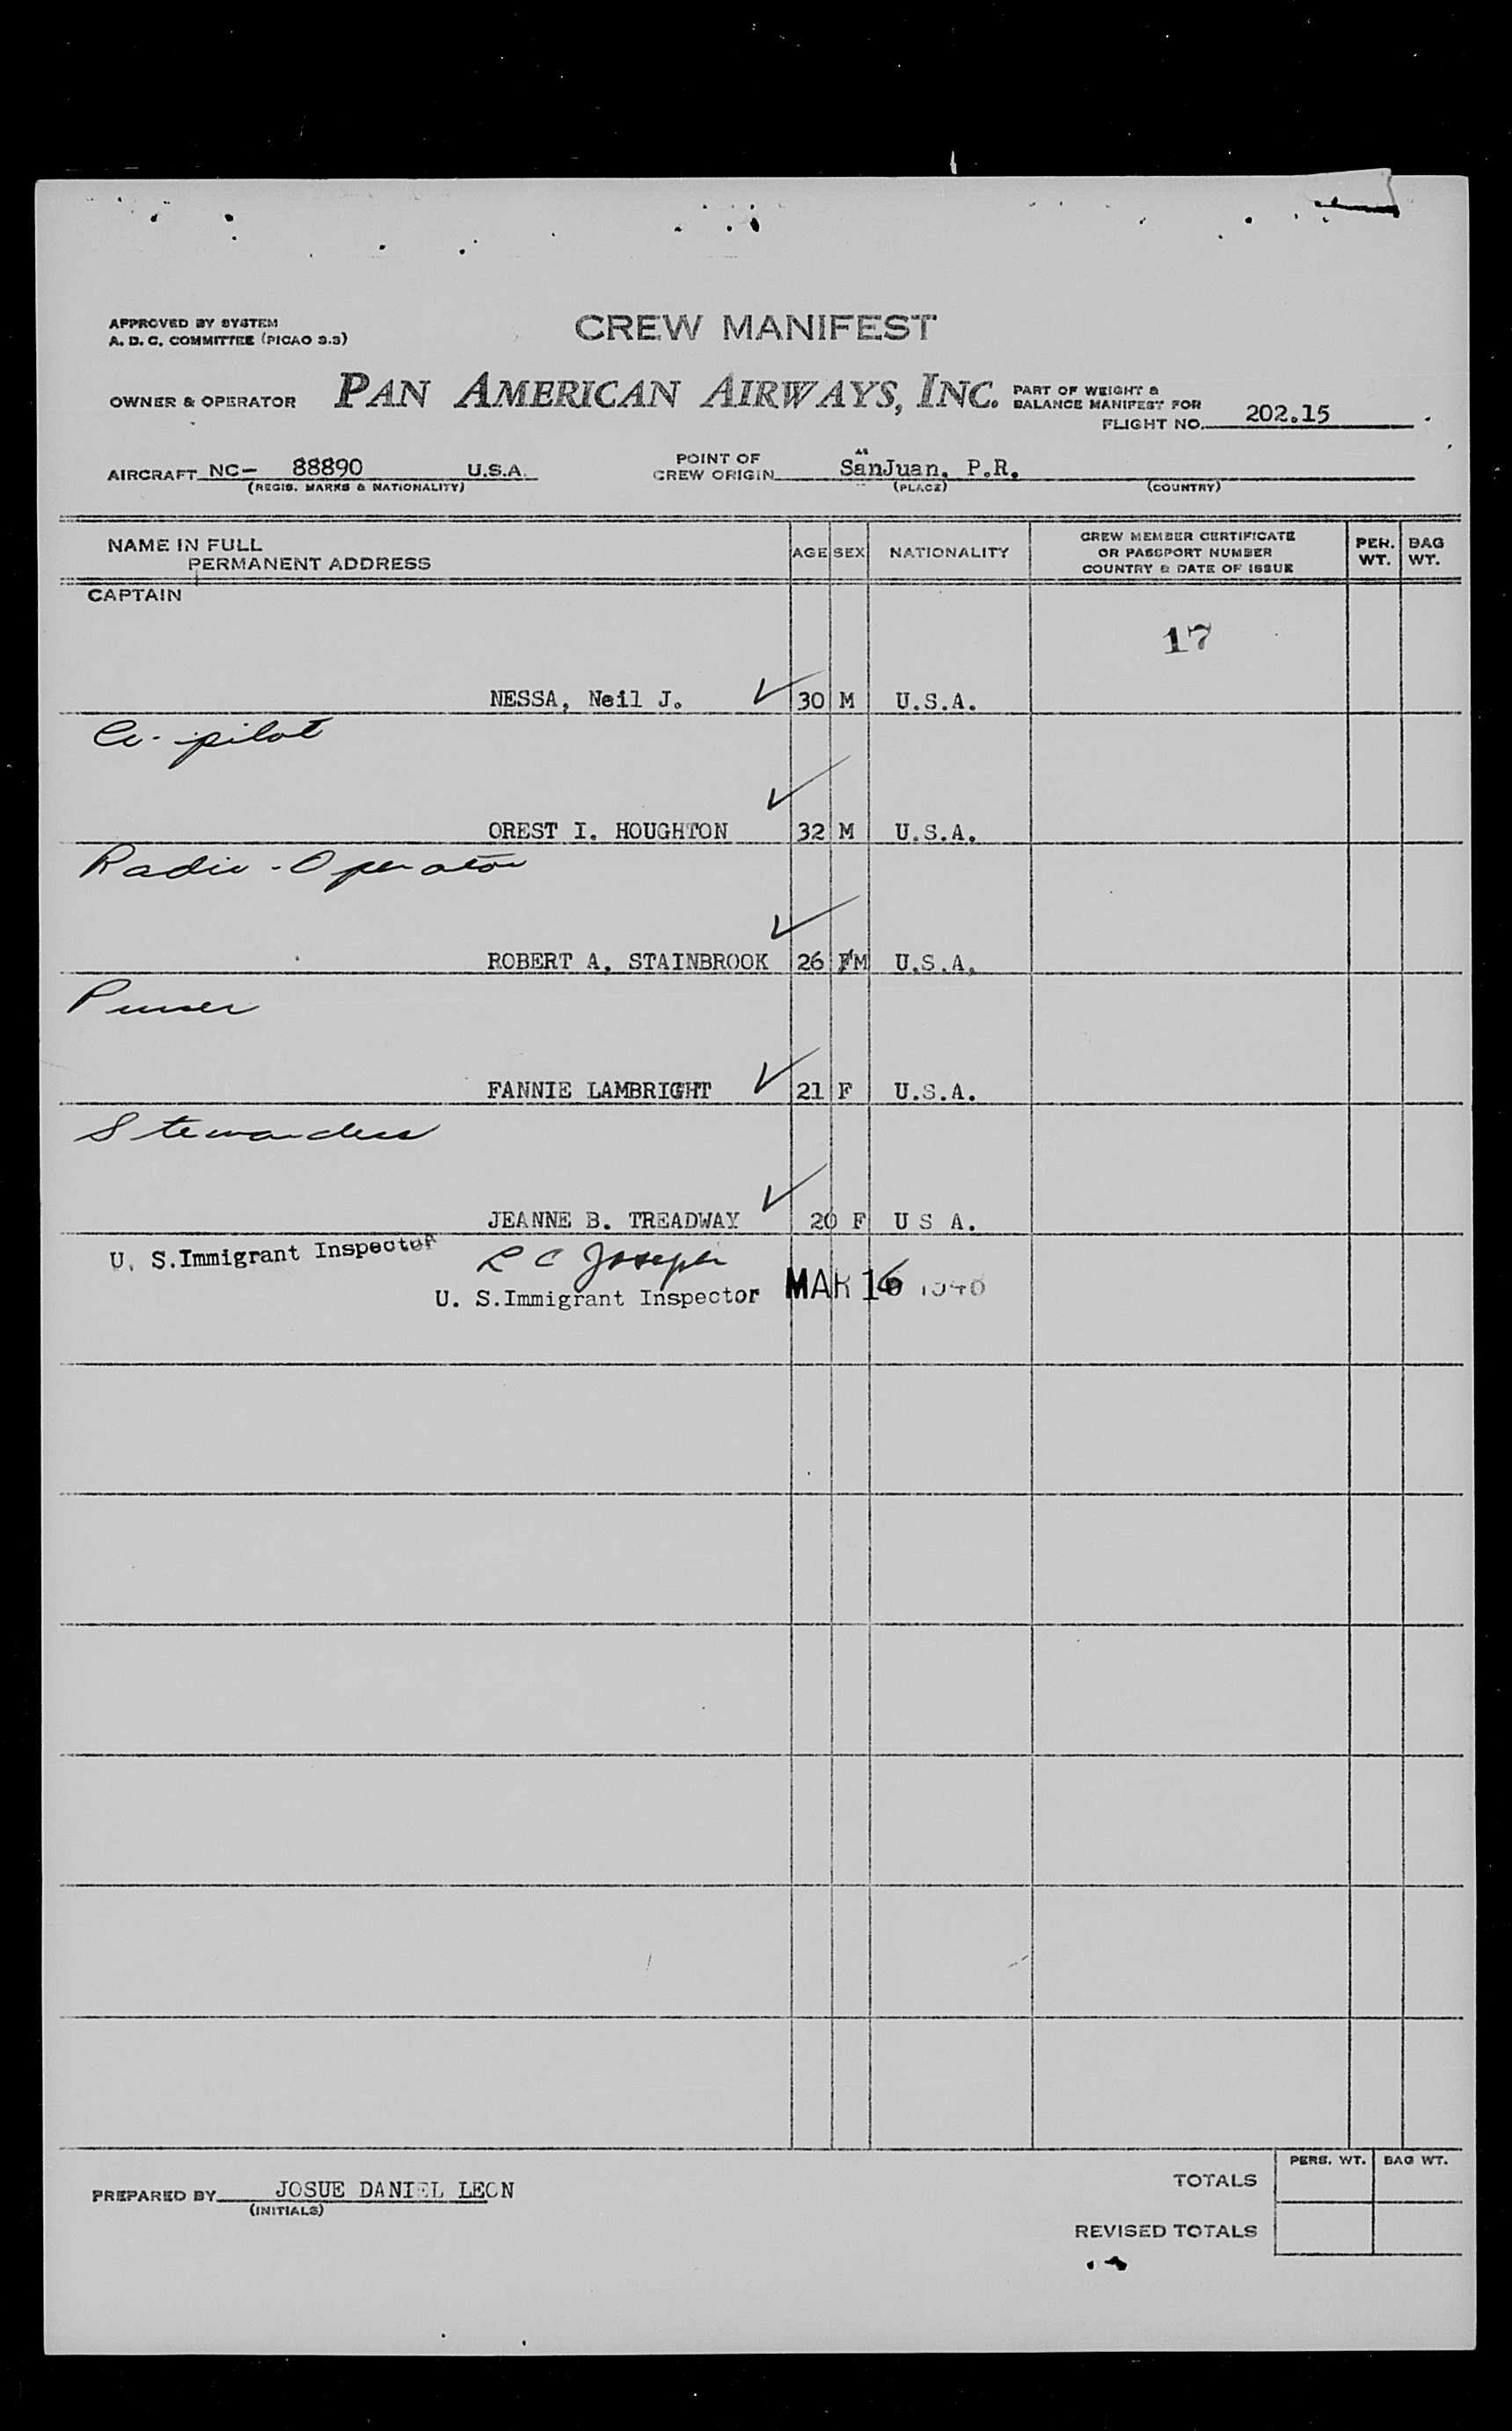 APPROVED BY SYSTEM
A. D. C. COMMITTEE (PICAO 3.3)
CREW MANIFEST
OWNER & OPERATOR PAN AMERICAN AIRWAYS, INC. PART OF WEIGHT &
BALANCE MANIFEST FOR
FLIGHT NO. 202.15
AIRCRAFT NC- 88890 U.S.A.
(REGIS. MARKS & NATIONALITY)
POINT OF
CREW ORIGIN SanJuan, P.R.
(PLACE) (COUNTRY)
NAME IN FULL
PERMANENT ADDRESS
AGE SEX NATIONALITY
CREW MEMBER CERTIFICATE
OR PASSPORT NUMBER
COUNTRY & DATE OF ISSUE
PER. WT.
BAG WT.
CAPTAIN
17
NESSA, Neil J. 30 M U.S.A.
Co-pilot
OREST I. HOUGHTON 32 M U.S.A.
Radio-Operator
ROBERT A. STAINBROOK 26 FM U.S.A.
Purser
FANNIE LAMBRIGHT 21 F U.S.A.
Stewardess
JEANNE B. TREADWAY 20 F U S A.
U. S.Immigrant Inspector R C Joseph
U. S.Immigrant Inspector MAR 16
PERS. WT. BAG WT.
TOTALS
PREPARED BY JOSUE DANIEL LEON
(INITIALS)
REVISED TOTALS